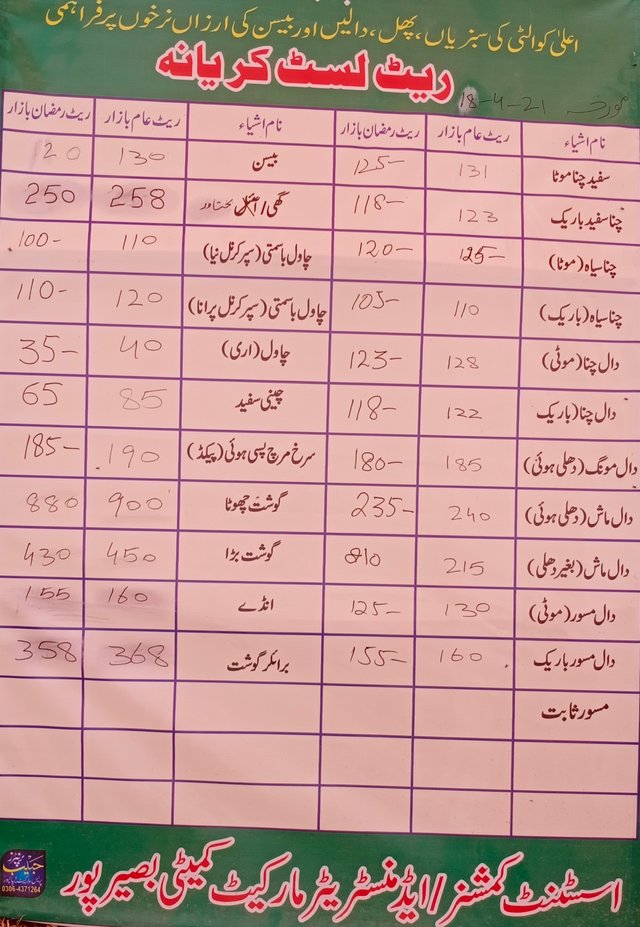 اعلیٰ کوالٹی کی سبزیاں، پھل، دالیں اور بیسن کی ارزاں نرخوں پر فراہمی
ریٹ لسٹ کریانہ
مورخہ 18-4-21
نام اشیاء ریٹ عام بازار ریٹ رمضان بازار نام اشیاء ریٹ عام بازار ریٹ رمضان بازار
سفید چنا موٹا 131 125- بیسن 130 120
چنا سفید باریک 123 118- گھی / آئل 258 250
چنا سیاہ (موٹا) 125- 120- چاول باسمتی (سپر کرنل نیا) 110 100-
چنا سیاہ (باریک) 110 105- چاول باسمتی (سپر کرنل پرانا) 120 110-
دال چنا (موٹی) 128 123- چاول (اری) 40 35-
دال چنا (باریک 122 118- چینی سفید 85 65
دال مونگ (دھلی ہوئی) 185 180- سرخ مرچ پسی ہوئی (پیکڈ) 190 185-
دال ماش (دھلی ہوئی) 240 235- گوشت چھوٹا 900 880
دال ماش (بغیر دھلی) 215 210 گوشت بڑا 450 430
دال مسور (موٹی) 130 125- انڈے 160 155
دال مسور باریک 160 155- برائلر گوشت 368 358
مسور ثابت
اسسٹنٹ کمشنر / ایڈمنسٹریٹر مارکیٹ کمیٹی بصیر پور
0306-4371264